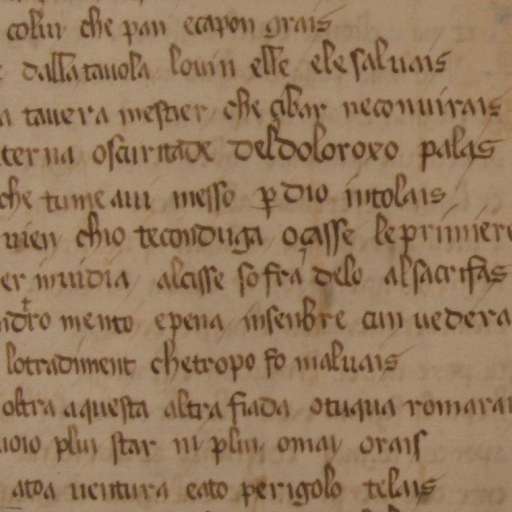 colui che pan ecapon grais
dalla tauola louin elle elesaluais
tauera mestier che çibar neconuirais
terna oscuritade deldoloroxo palais
che tumeaui messo p dio intolais
uien chio teconduga oçasse leprimiere
er inuidia alcisse sofra delo alsacrifas
mento epena insenbre cun uedera
lotradiment chetropo fo maluais
oltra aquesta altra fiada otuqua romarai
uoio plui star ni plui omai orais
atoa uentura eato perigolo telais